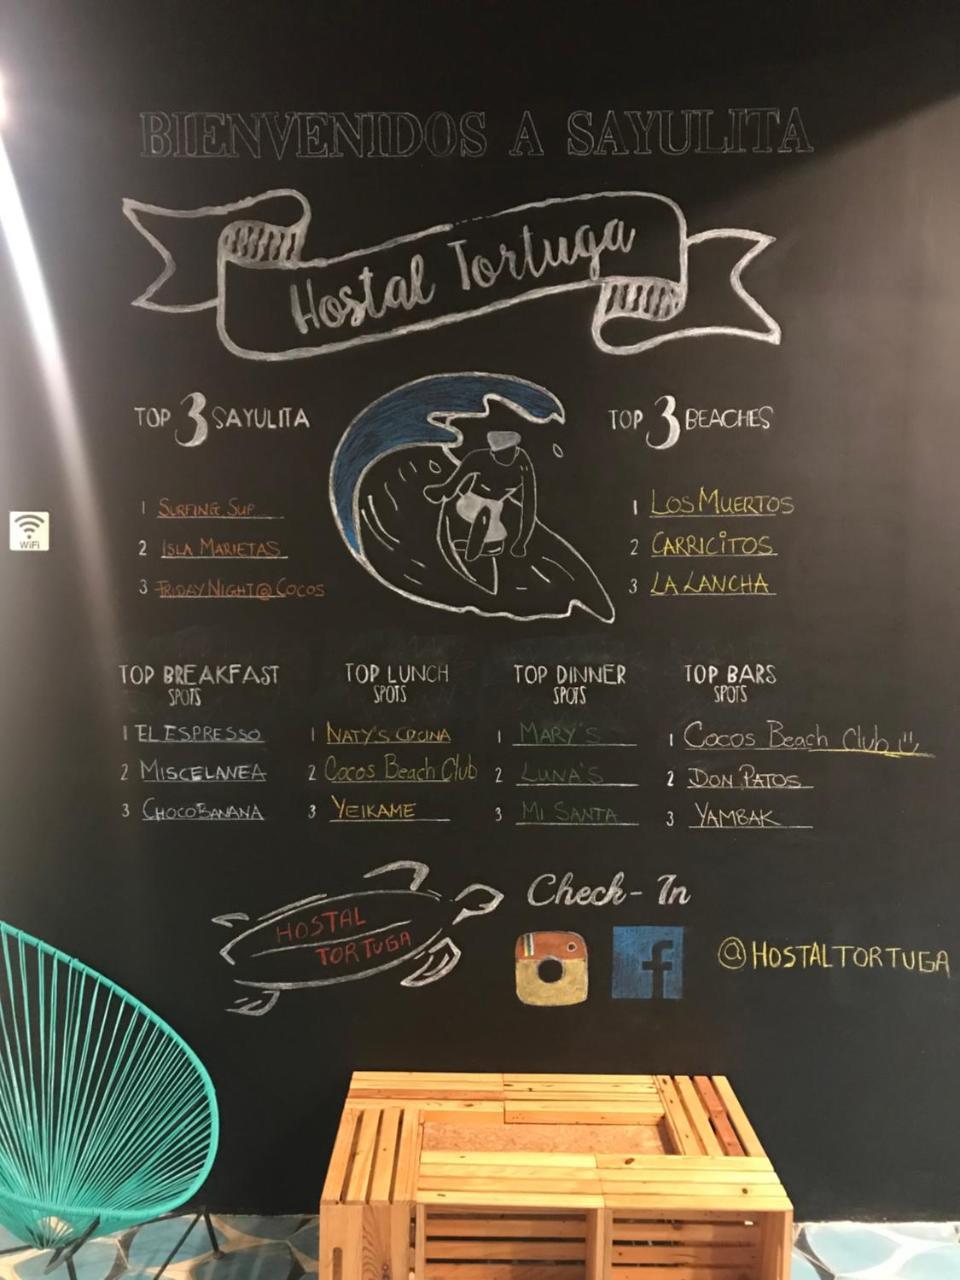 BIENVENIDOS A SAYULITA
Hostal Tortuga
TOP 3 SAYULITA
1 SURFING SUP
2 ISLA MARIETAS
3 FRIDAY NIGHT @ COCOS
TOP 3 BEACHES
1 LOS MUERTOS
2 CARRICITOS
3 LA LANCHA
WiFi
TOP BREAKFAST
SPOTS
1 EL ESPRESSO
2 MISCELANEA
3 CHOCOBANANA
TOP LUNCH
SPOTS
1 NATY'S COCINA
2 Cocos Beach Club
3 YEIKAME
TOP DINNER
SPOTS
1 MARY'S
2 LUNA'S
3 MI SANTA
TOP BARS
SPOTS
1 Cocos Beach Club
2 DON PATOS
3 YAMBAK
HOSTAL
TORTUGA
Check-In
f
@HOSTALTORTUGA